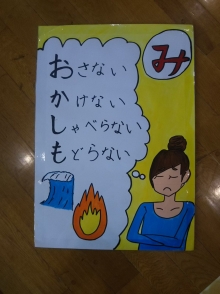 み
おさない
かけない
しゃべらない
もどらない